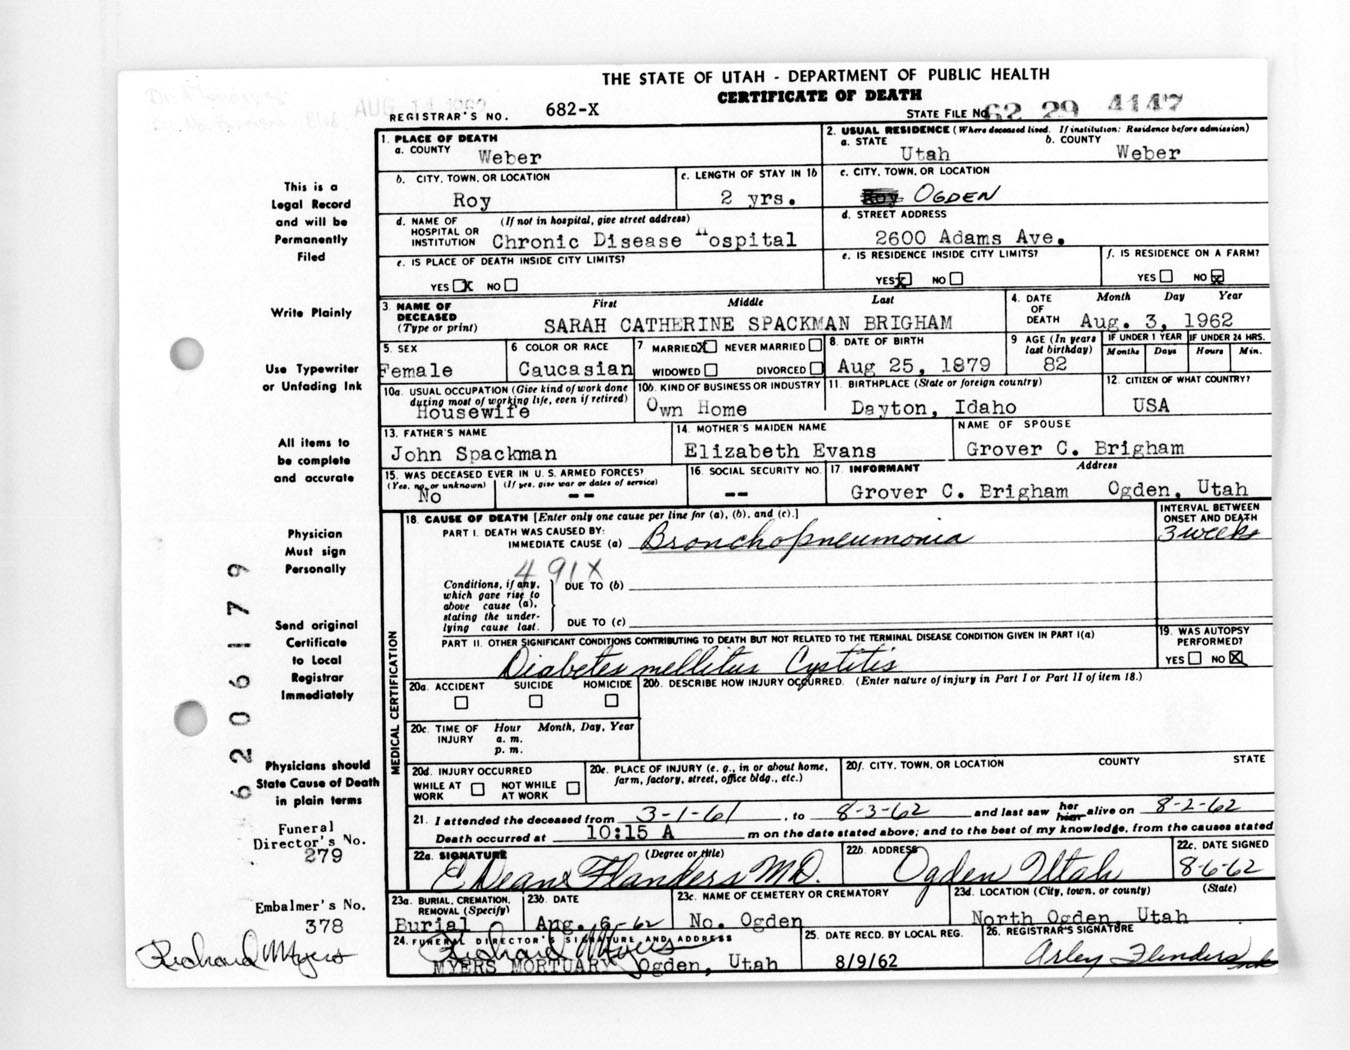 THE STATE OF UTAH - DEPARTMENT OF PUBLIC HEALTH
CERTIFICATE OF DEATH
AUG 14 1962
REGISTRAR'S NO. 682-X
STATE FILE NO. 62 29 4147
1. PLACE OF DEATH
a. COUNTY Weber
2. USUAL RESIDENCE (Where deceased lived. If institution: Residence before admission)
a. STATE Utah b. COUNTY Weber
b. CITY, TOWN, OR LOCATION Roy
c. LENGTH OF STAY IN 1b 2 yrs.
c. CITY, TOWN, OR LOCATION Roy OGDEN
d. NAME OF HOSPITAL OR INSTITUTION (If not in hospital, give street address) Chronic Disease Hospital
d. STREET ADDRESS 2600 Adams Ave.
e. IS PLACE OF DEATH INSIDE CITY LIMITS? YES X NO
e. IS RESIDENCE INSIDE CITY LIMITS? YES X NO
f. IS RESIDENCE ON A FARM? YES NO X
3. NAME OF DECEASED (Type or print) First Middle Last
SARAH CATHERINE SPACKMAN BRIGHAM
4. DATE OF DEATH Month Day Year
Aug. 3, 1962
5. SEX Female
6 COLOR OR RACE Caucasian
7 MARRIED X NEVER MARRIED
WIDOWED DIVORCED
8. DATE OF BIRTH Aug 25, 1879
9 AGE (In years last birthday) 82
IF UNDER 1 YEAR Months Days
IF UNDER 24 HRS. Hours Min.
10a. USUAL OCCUPATION (Give kind of work done during most of working life, even if retired) Housewife
10b. KIND OF BUSINESS OR INDUSTRY Own Home
11. BIRTHPLACE (State or foreign country) Dayton, Idaho
12. CITIZEN OF WHAT COUNTRY? USA
13. FATHER'S NAME John Spackman
14. MOTHER'S MAIDEN NAME Elizabeth Evans
NAME OF SPOUSE Grover C. Brigham
15. WAS DECEASED EVER IN U. S. ARMED FORCES?
(Yes, no, or unknown) (If yes, give war or dates of service)
No --
16. SOCIAL SECURITY NO. --
17. INFORMANT Address
Grover C. Brigham Ogden, Utah
18. CAUSE OF DEATH [Enter only one cause per line for (a), (b), and (c).]
INTERVAL BETWEEN ONSET AND DEATH
PART I. DEATH WAS CAUSED BY:
IMMEDIATE CAUSE (a) Bronchopneumonia 3 weeks
491X
Conditions, if any, which gave rise to above cause (a), stating the underlying cause last.
DUE TO (b)
DUE TO (c)
PART II. OTHER SIGNIFICANT CONDITIONS CONTRIBUTING TO DEATH BUT NOT RELATED TO THE TERMINAL DISEASE CONDITION GIVEN IN PART I(a)
Diabetes mellitus Cystitis
19. WAS AUTOPSY PERFORMED? YES NO X
20a. ACCIDENT SUICIDE HOMICIDE
20b. DESCRIBE HOW INJURY OCCURRED. (Enter nature of injury in Part I or Part II of item 18.)
20c. TIME OF INJURY Hour Month, Day, Year
a. m.
p. m.
20d. INJURY OCCURRED
WHILE AT WORK NOT WHILE AT WORK
20e. PLACE OF INJURY (e. g., in or about home, farm, factory, street, office bldg., etc.)
20f. CITY, TOWN, OR LOCATION COUNTY STATE
21. I attended the deceased from 3-1-61, to 8-3-62 and last saw her him alive on 8-2-62
Death occurred at 10:15 A m on the date stated above; and to the best of my knowledge, from the causes stated
22a. SIGNATURE (Degree or title) E Deane Flanders MD.
22b. ADDRESS Ogden Utah
22c. DATE SIGNED 8-6-62
23a. BURIAL, CREMATION, REMOVAL (Specify) Burial
23b. DATE Aug. 6-62
23c. NAME OF CEMETERY OR CREMATORY No. Ogden
23d. LOCATION (City, town, or county) (State)
North Ogden, Utah
24. FUNERAL DIRECTOR'S SIGNATURE AND ADDRESS
Richard Myers
MYERS MORTUARY Ogden, Utah
25. DATE RECD. BY LOCAL REG. 8/9/62
26. REGISTRAR'S SIGNATURE
Arley Flinders
MEDICAL CERTIFICATION
This is a
Legal Record
and will be
Permanently
Filed
Write Plainly
Use Typewriter
or Unfading Ink
All items to
be complete
and accurate
Physician
Must sign
Personally
Send original
Certificate
to Local
Registrar
Immediately
Physicians should
State Cause of Death
in plain terms
Funeral
Director's No.
279
Embalmer's No.
378
Richard Myers
6206179